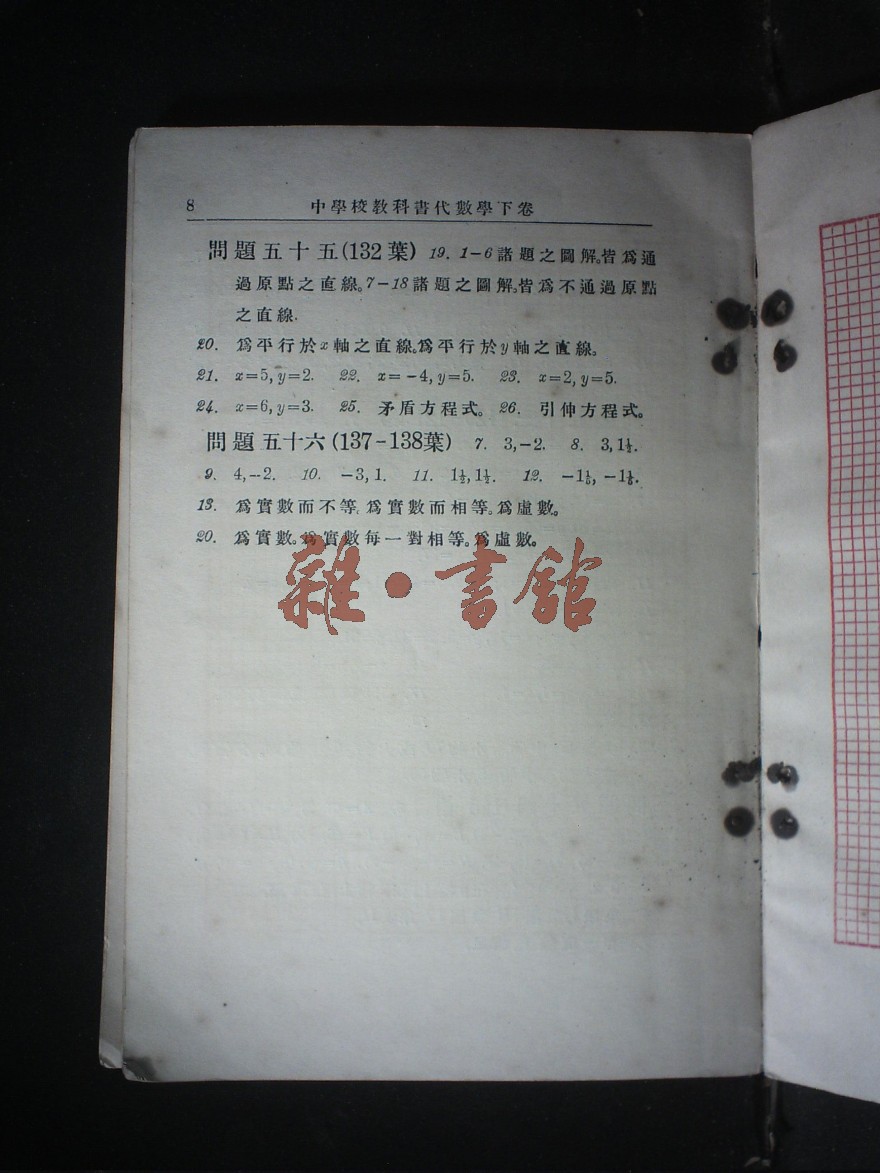 8 中學校教科書代數學下卷
問題五十五(132葉) 19. 1-6諸題之圖解。皆爲通
過原點之直線。7-18諸題之圖解。皆爲不通過原點
之直線.
20. 爲平行於x軸之直線。爲平行於y軸之直線。
21. x=5, y=2. 22. x=-4, y=5. 23. x=2, y=5.
24. x=6, y=3. 25. 矛盾方程式。 26. 引伸方程式。
問題五十六(137-138葉) 7. 3,-2. 8. 3,1½.
9. 4,-2. 10. -3, 1. 11. 1½,1½. 12.
13. 爲實數而不等. 爲實數而相等。爲虛數。
20. 爲實數。爲實數每一對相等。爲虛數。
雜·書館